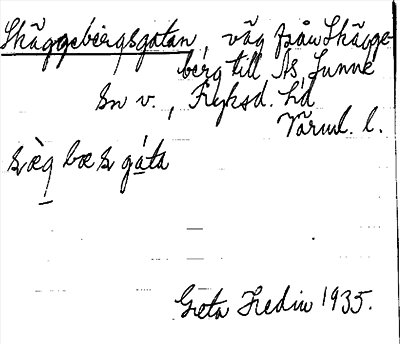 Skäggebergsgatan, väg från Skägge-
berg till Ås, Sunne
sn v., Fryksd. hd
Värml. l.
sæ̀g bær gáta
Greta Hedin 1935.